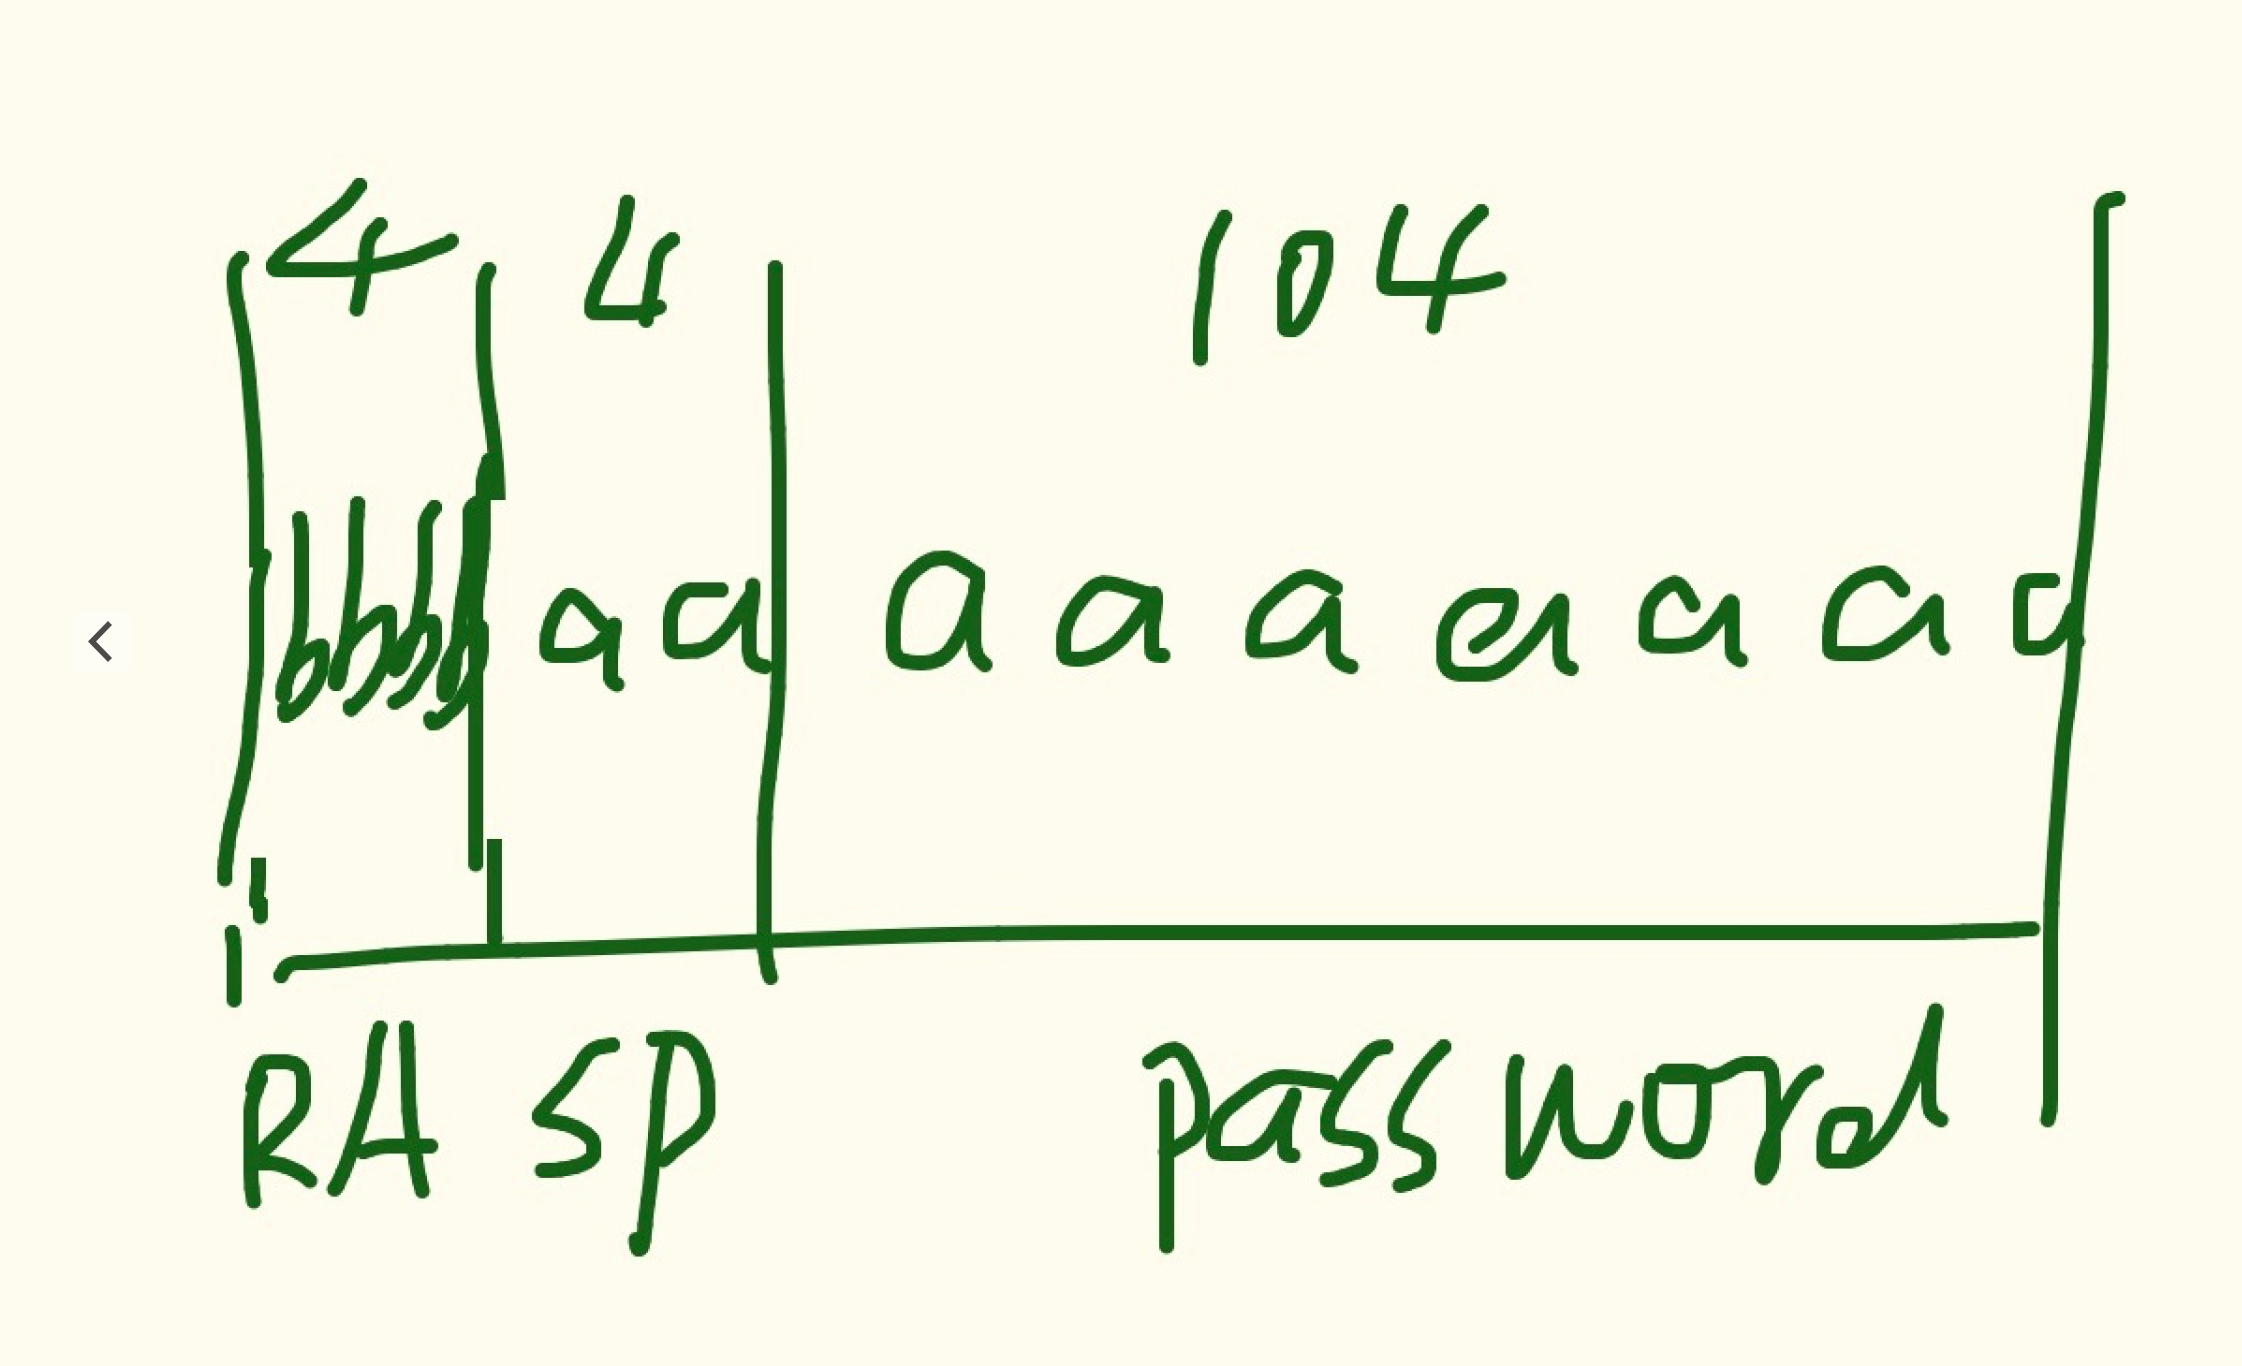 4 4 104
bbbb aa aaaaaaa
RA SP password